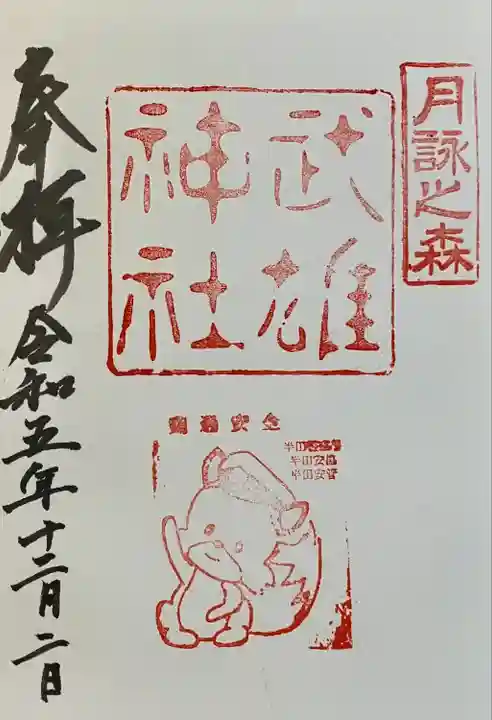 月詠之森
武雄
神社
奉拝
令和五年十二月二日
交通安全
半田安協
半田安管